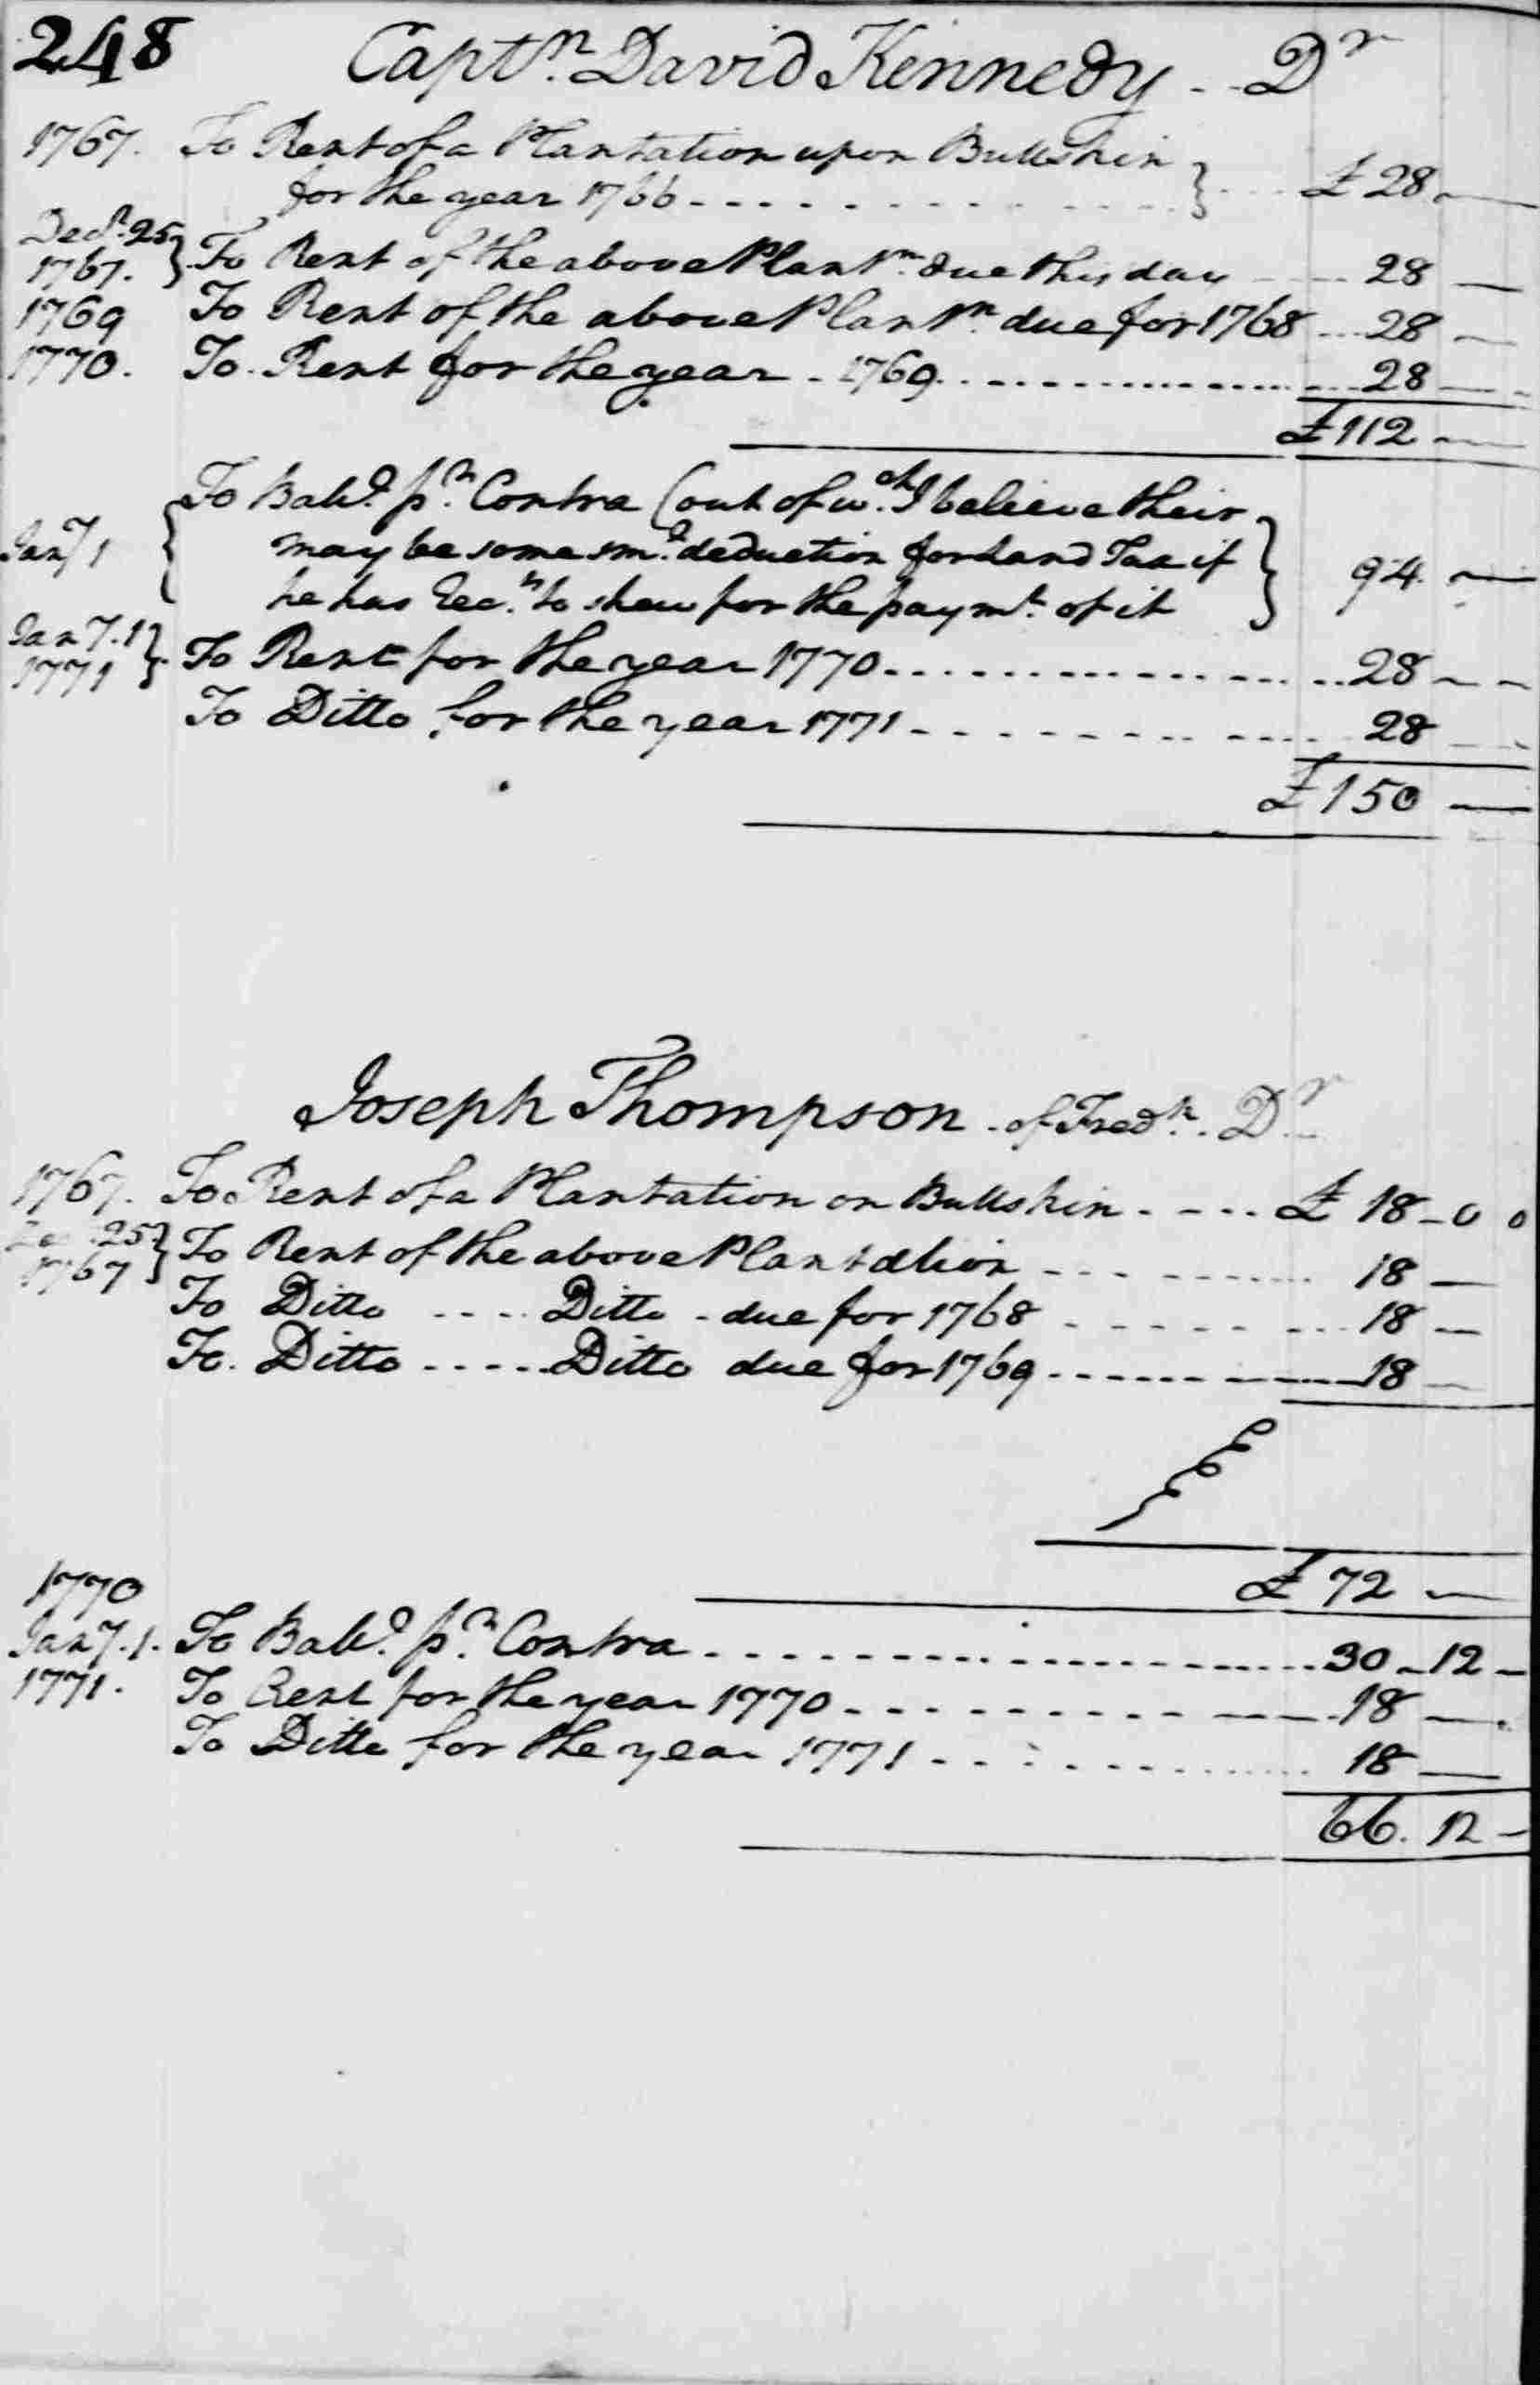 248 Captn. David Kennedy -- Dr
1767. To Rent of a Plantation upon Bullskin
for the year 1766 - - - - £ 28 —
Decr. 25
1767. To Rent of the above Plantn. due this day - - 28 —
1769 To Rent of the above Plantn. due for 1768 ... 28 —
1770. To Rent for the year - 1769 ........ 28 —
£ 112 —
To Balce. pr. Contra (out of wch. I believe their
Jany 1 may be some sml. deduction for Land Tax if 94 —
he has Recs. to shew for the paymt. of it
Jany. 1
1771 To Rent for the year 1770 ........ 28 — —
To Ditto for the year 1771 - - - - - 28
£ 150 —
Joseph Thompson - of Fredk. Dr
1767. To Rent of a Plantation on Bullskin - - - - £ 18 - 0 0
Decr. 25
1767 To Rent of the above Plantation - - - - 18 —
To Ditto - - - - Ditto - due for 1768 - - - - 18 —
To. Ditto - - - - Ditto due for 1769 - - - - 18 —
£ 72 —
1770
Jany. 1. To Balce. pr. Contra ........ 30 - 12 —
1771. To Rent for the year 1770 - - - - 18 —
To Ditto for the year 1771 - - - - 18 —
66. 12 —